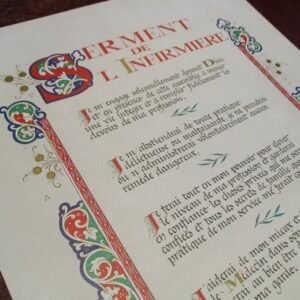 SERMENT
DE
L'INFIRMIÈRE
Je m'engage solennellement devant Dieu
et en présence de cette assemblée à mener
une vie intègre et à remplir fidèlement les
devoirs de ma profession.
Je m'abstiendrai de toute pratique
délictueuse ou malhonnête, je ne prendrai
ou n'administrerai volontairement aucun
remède dangereux.
Je ferai tout en mon pouvoir pour élever
le niveau de ma profession et garderai
en confiance les choses privées qui me
confiées et tous les secrets de famille
pratique de mon service me
J'aiderai de mon mieux
Médecin dans son
au bien
garde